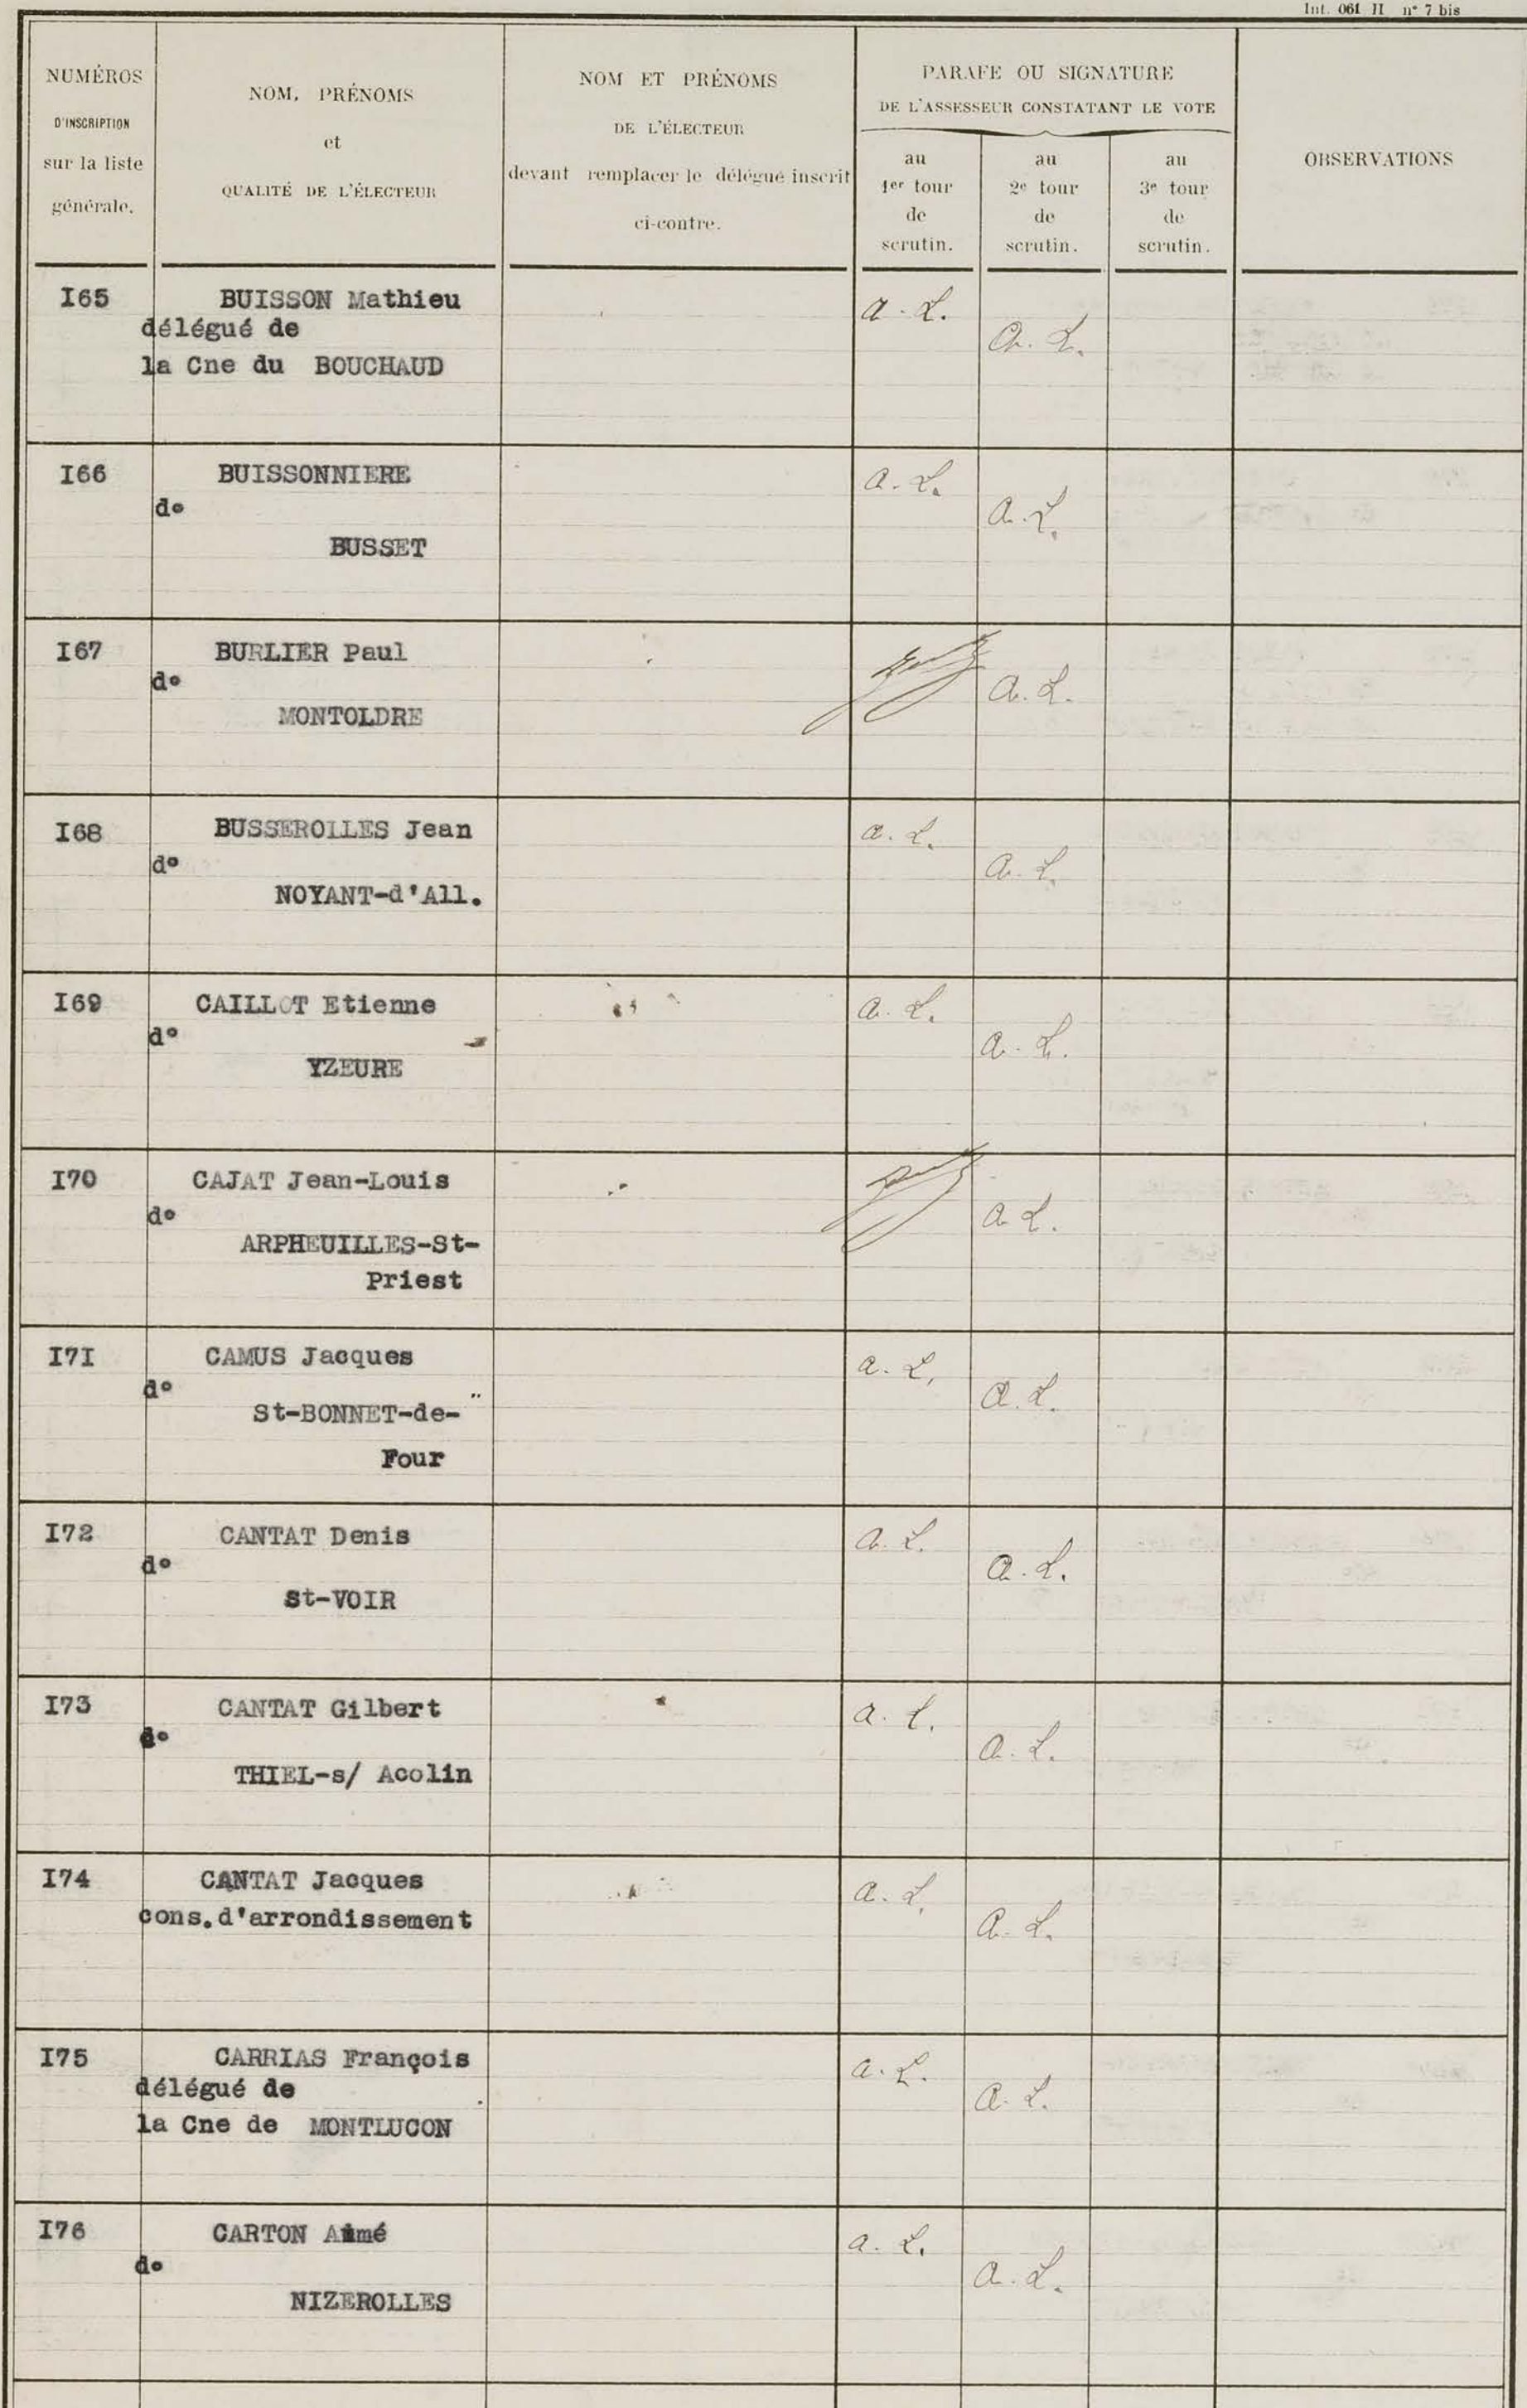 Int. 061 II n° 7 bis
NUMÉROS
D'INSCRIPTION
sur la liste
générale.
NOM, PRÉNOMS
et
QUALITÉ DE L'ÉLECTEUR
NOM ET PRÉNOMS
DE L'ÉLECTEUR
devant remplacer le délégué inscrit
ci-contre.
PARAFE OU SIGNATURE
DE L'ASSESSEUR CONSTATANT LE VOTE
au
1er tour
de
scrutin.
au
2e tour
de
scrutin.
au
3e tour
de
scrutin.
OBSERVATIONS
I65 BUISSON Mathieu a. L.
délégué de a. L.
la Cne du BOUCHAUD
I66 BUISSONNIERE a. L.
do a. L.
BUSSET
I67 BURLIER Paul
do a. L.
MONTOLDRE
I68 BUSSEROLLES Jean a. L.
do a. L.
NOYANT-d'All.
I69 CAILLOT Etienne a. L.
do a. L.
YZEURE
I70 CAJAT Jean-Louis
do a. L.
ARPHEUILLES-St-
Priest
I7I CAMUS Jacques a. L.
do a. L.
St-BONNET-de-"
Four
I72 CANTAT Denis a. L.
do a. L.
St-VOIR
I73 CANTAT Gilbert a. L.
do a. L.
THIEL-s/ Acolin
I74 CANTAT Jacques a. L.
cons.d'arrondissement a. L.
I75 CARRIAS François a. L.
délégué de a. L.
la Cne de MONTLUCON
I76 CARTON Aimé a. L.
do a. L.
NIZEROLLES